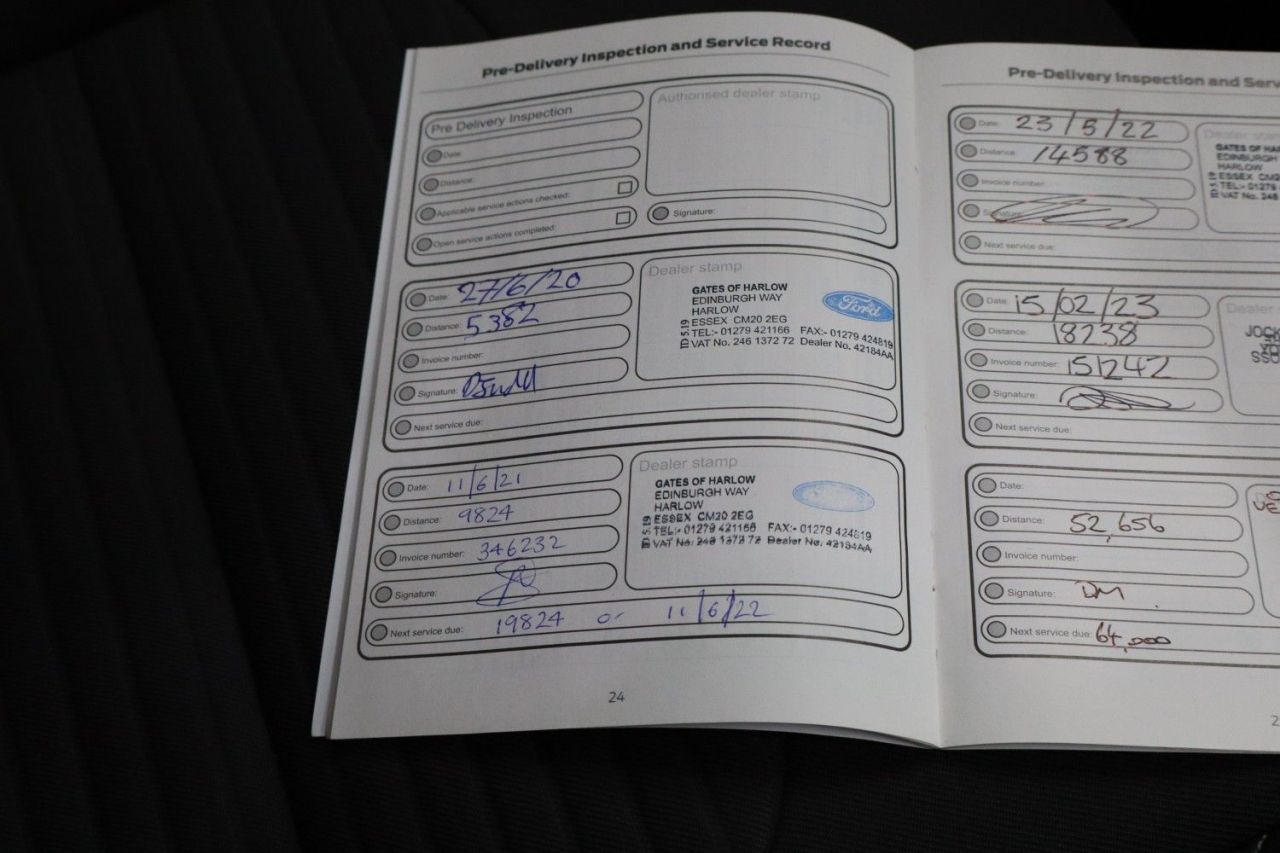 Pre-Delivery Inspection and Service Record
Pre Delivery Inspection
Date:
Distance:
Applicable service actions checked:
Open service actions completed:
Authorised dealer stamp
Signature:
Date: 27/6/20
Distance: 5382
Invoice number:
Signature:
Next service due:
Dealer stamp
GATES OF HARLOW
EDINBURGH WAY
HARLOW
ESSEX CM20 2EG
TEL:- 01279 421166 FAX:- 01279 424819
VAT No. 246 1372 72 Dealer No. 42184AA
ID 5.19
Ford
Date: 11/6/21
Distance: 9824
Invoice number: 346232
Signature:
Next service due: 19824 or 11/6/22
Dealer stamp
GATES OF HARLOW
EDINBURGH WAY
HARLOW
ESSEX CM20 2EG
TEL:- 01279 421166 FAX:- 01279 424819
VAT No. 246 1372 72 Dealer No. 42184AA
24
Pre-Delivery Inspection and Serv
Date: 23/5/22
Distance: 14588
Invoice number:
Signature:
Next service due:
Dealer
GATES OF HA
EDINBURGH
HARLOW
ESSEX CM2
TEL:- 01279
VAT No. 246
Date: 15/02/23
Distance: 18238
Invoice number: 151242
Signature:
Next service due:
Dealer
JOC
Date:
Distance: 52,656
Invoice number:
Signature: DM
Next service due: 64,000